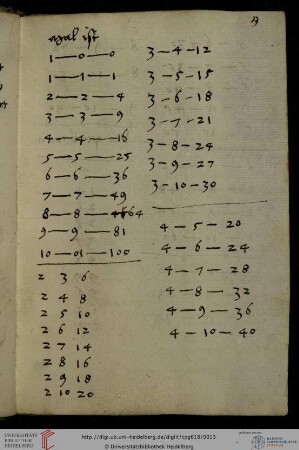 9
1 — 0 — 0
1 — 1 — 1
2 — 2 — 4
3 — 3 — 9
4 — 4 — 16
5 — 5 — 25
6 — 6 — 36
7 — 7 — 49
8 — 8 — 64
9 — 9 — 81
10 — 01 — 100
2 3 6
2 4 8
2 5 10
2 6 12
2 7 14
2 8 16
2 9 18
2 10 20
3 — 4 — 12
3 — 5 — 15
3 — 6 — 18
3 — 7 — 21
3 — 8 — 24
3 — 9 — 27
3 — 10 — 30
4 — 5 — 20
4 — 6 — 24
4 — 7 — 28
4 — 8 — 32
4 — 9 — 36
4 — 10 — 40
UNIVERSITÄTS-
BIBLIOTHEK
HEIDELBERG
http://digi.ub.uni-heidelberg.de/diglit/cpg618/0013
Universitätsbibliothek Heidelberg